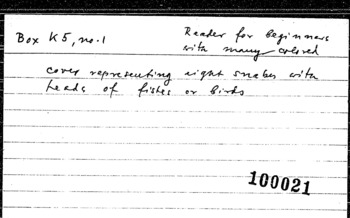 Box K5, no. 1
Reader for beginners
with many colored
cover representing eight snakes with
heads of fishes or birds
100021